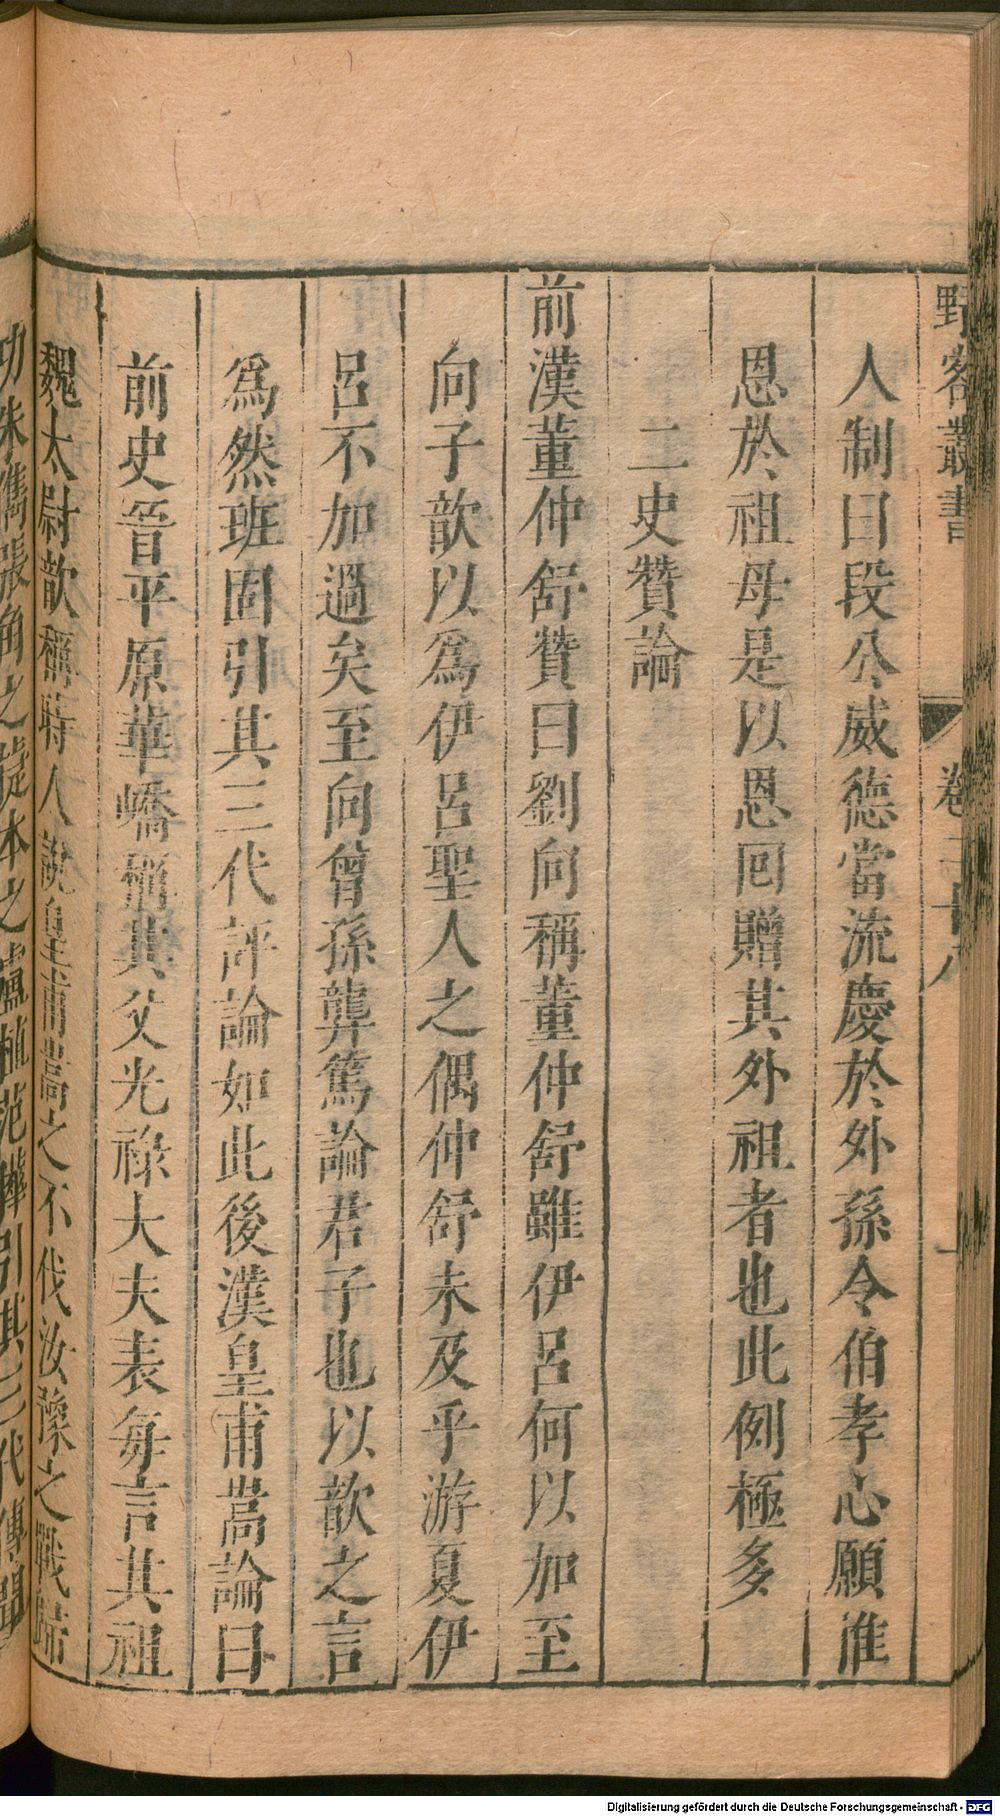 野客叢書 卷二十八
人制曰段公威德當流慶於外孫令伯孝心願進
恩於祖母是以恩囘贈其外祖者也此例極多
二史贊論
前漢董仲舒贊曰劉向稱董仲舒雖伊呂何以加至
向子歆以爲伊呂聖人之偶仲舒未及乎游夏伊
呂不加過矣至向曾孫龔篤論君子也以歆之言
爲然班固引其三代評論如此後漢皇甫嵩論曰
前史晉平原華嶠稱其父光祿大夫表每言其祖
魏太尉歆稱時人說皇甫嵩之不伐汝豫之戰歸
功朱儁張角之捷本之盧植范曄引其三代傳聞
Digitalisierung gefördert durch die Deutsche Forschungsgemeinschaft - DFG